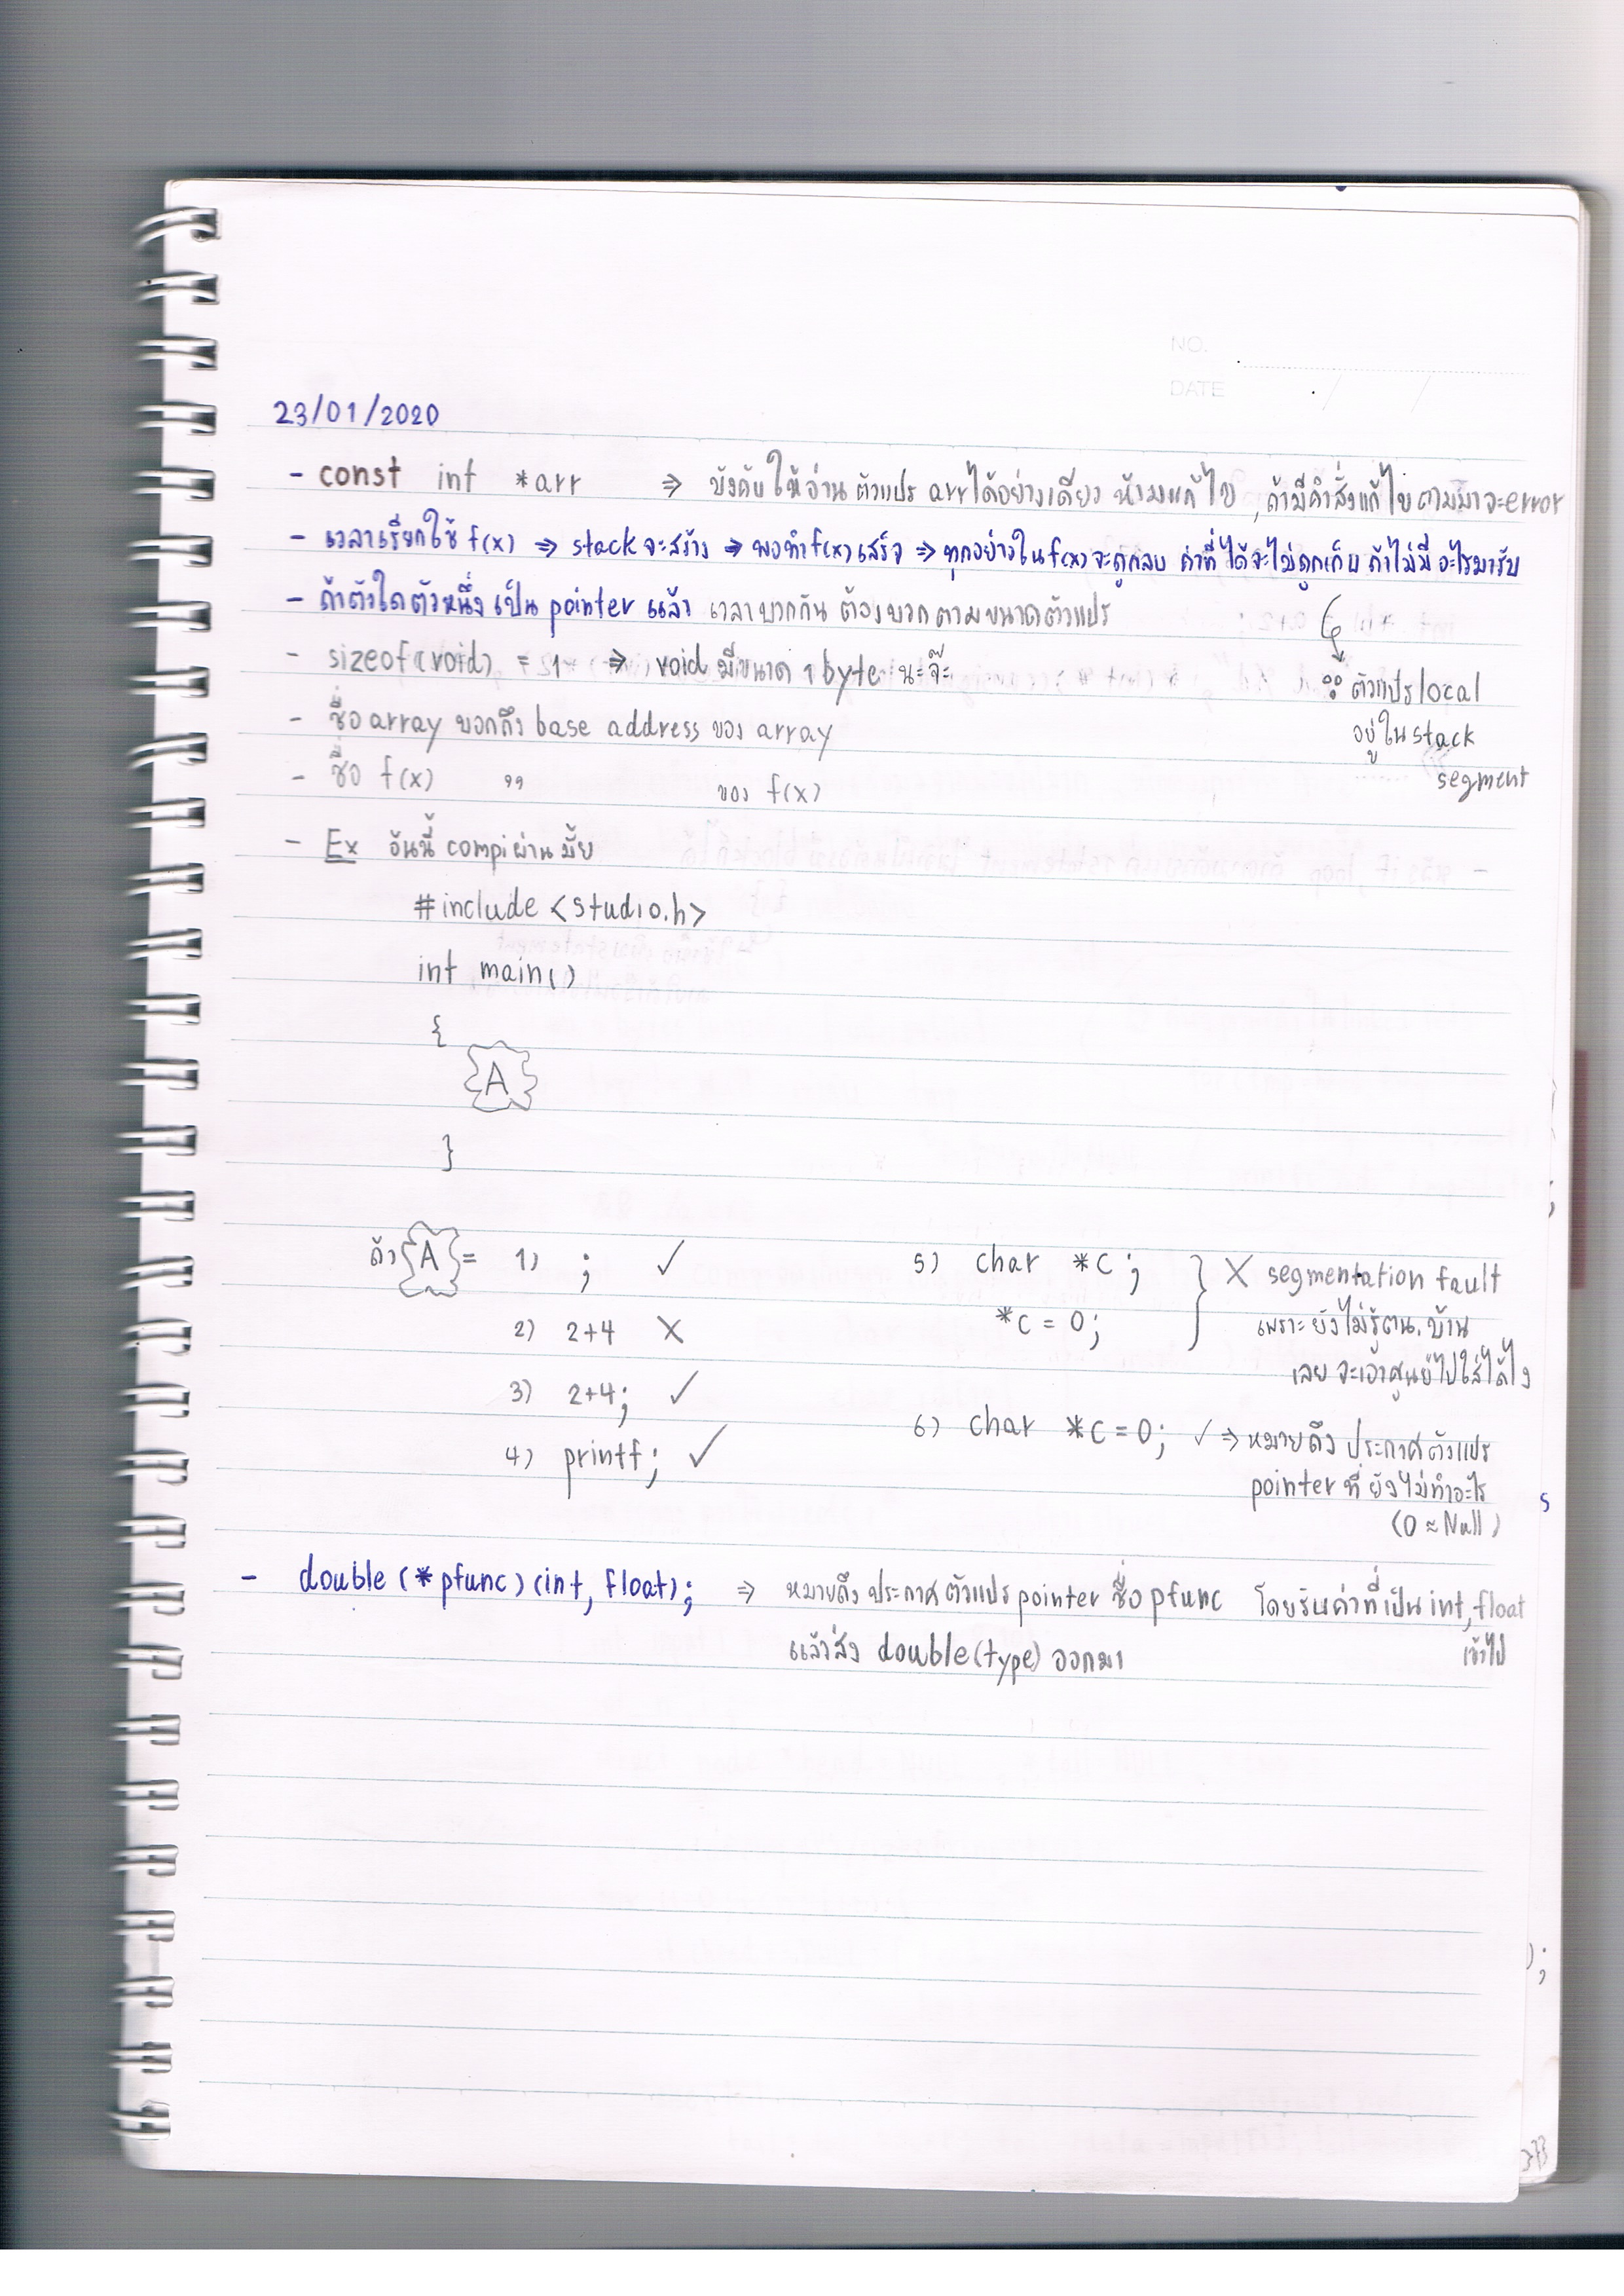 NO.
DATE
23/01/2020
- const int *arr ⇒ บังคับให้อ่าน ตัวแปร arr ได้อย่างเดียว ห้ามแก้ไข, ถ้ามีคำสั่งแก้ไขตามมาจะ error
- เวลาเรียกใช้ f(x) ⇒ stack จะสร้าง ⇒ พอทำ f(x) เสร็จ ⇒ ทุกอย่างใน f(x) จะถูกลบ ค่าที่ได้จะไม่ถูกเก็บ ถ้าไม่มีอะไรมารับ
- ถ้าตัวใดตัวหนึ่งเป็น pointer แล้ว เวลาบวกกัน ต้องบวกตามขนาดตัวแปร
- sizeof(void) = 1 ⇒ void มีขนาด 1 byte นะจ๊ะ
ตัวแปร local
อยู่ใน stack
segment
- ชื่อ array บอกถึง base address ของ array
- ชื่อ f(x) ,, ของ f(x)
- Ex อันนี้ compi ผ่านมั้ย
#include <studio.h>
int main()
{
A
}
ถ้า A = 1) ; ✓
2) 2+4 X
3) 2+4; ✓
4) printf; ✓
5) char *c; } X segmentation fault
*c = 0; เพราะยังไม่รู้ตน.บ้าน
เลย จะเอาศูนย์ไปใส่ได้ไง
6) char *c = 0; ✓ ⇒ หมายถึง ประกาศตัวแปร
pointer ที่ยังไม่ทำอะไร
(0 ≈ Null)
- double (*pfunc)(int, float); ⇒ หมายถึง ประกาศตัวแปร pointer ชื่อ pfunc โดยรับค่าที่เป็น int, float
เข้าไป
แล้วส่ง double(type) ออกมา